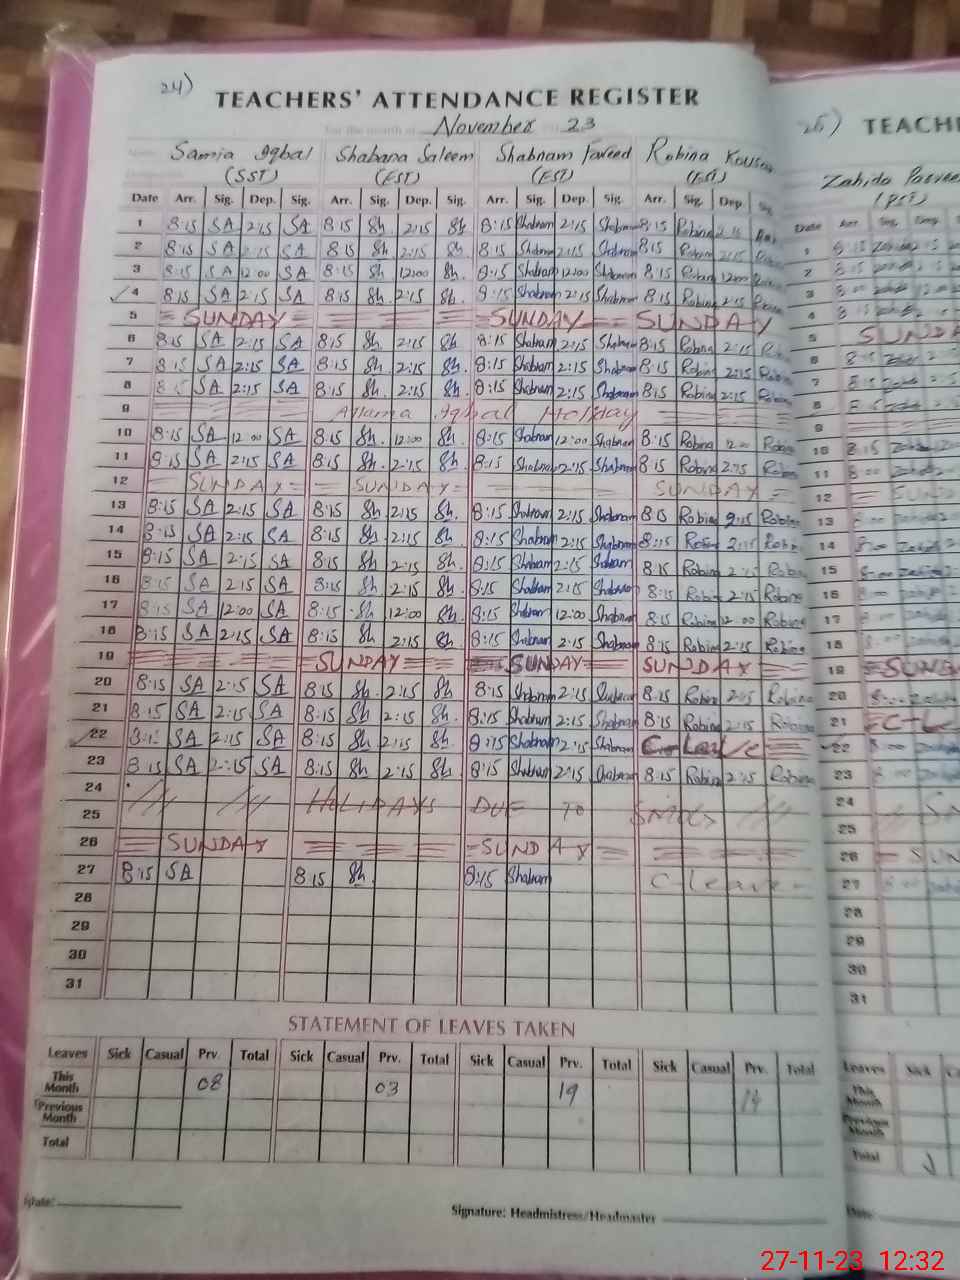 24)
TEACHERS' ATTENDANCE REGISTER
For the month of November 23
Samia Iqbal Shabana Saleem Shabnam Fareed Robina Kousar
(SST) (EST) (EST) (EST)
Date Arr. Sig. Dep. Sig. Arr. Sig. Dep. Sig. Arr. Sig. Dep. Sig. Arr. Sig. Dep. Sig.
1 8:15 SA 2:15 SA 8:15 Sh 2:15 Sh 8:15 Shabnam 2:15 Shabnam 8:15 Robina 2:15
2 8:15 SA 2:15 SA 8:15 Sh 2:15 Sh. 8:15 Shabnam 2:15 Shabnam 8:15 Robina 2:15
3 8:15 SA 12:00 SA 8:15 Sh 12:00 Sh. 8:15 Shabnam 12:00 Shabnam 8:15 Robina 12:00
4 8:15 SA 2:15 SA 8:15 Sh. 2:15 Sh. 8:15 Shabnam 2:15 Shabnam 8:15 Robina 2:15
5 SUNDAY SUNDAY SUNDAY
6 8:15 SA 2:15 SA 8:15 Sh 2:15 Sh. 8:15 Shabnam 2:15 Shabnam 8:15 Robina 2:15 Robina
7 8:15 SA 2:15 SA 8:15 Sh 2:15 Sh. 8:15 Shabnam 2:15 Shabnam 8:15 Robina 2:15 Robina
8 8:15 SA 2:15 SA 8:15 Sh. 2:15 Sh. 8:15 Shabnam 2:15 Shabnam 8:15 Robina 2:15 Robina
9 Allama Iqbal Holiday
10 8:15 SA 12:00 SA 8:15 Sh. 12:00 Sh. 8:15 Shabnam 12:00 Shabnam 8:15 Robina 12:00 Robina
11 8:15 SA 2:15 SA 8:15 Sh. 2:15 Sh. 8:15 Shabnam 2:15 Shabnam 8:15 Robina 2:15 Robina
12 SUNDAY SUNDAY SUNDAY
13 8:15 SA 2:15 SA 8:15 Sh 2:15 Sh. 8:15 Shabnam 2:15 Shabnam 8:15 Robina 2:15 Robina
14 8:15 SA 2:15 SA 8:15 Sh 2:15 Sh. 8:15 Shabnam 2:15 Shabnam 8:15 Robina 2:15 Robina
15 8:15 SA 2:15 SA 8:15 Sh 2:15 Sh. 8:15 Shabnam 2:15 Shabnam 8:15 Robina 2:15 Robina
16 8:15 SA 2:15 SA 8:15 Sh 2:15 Sh. 8:15 Shabnam 2:15 Shabnam 8:15 Robina 2:15 Robina
17 8:15 SA 12:00 SA 8:15 Sh 12:00 Sh. 8:15 Shabnam 12:00 Shabnam 8:15 Robina 12:00 Robina
18 8:15 SA 2:15 SA 8:15 Sh 2:15 Sh. 8:15 Shabnam 2:15 Shabnam 8:15 Robina 2:15 Robina
19 SUNDAY SUNDAY SUNDAY
20 8:15 SA 2:15 SA 8:15 Sh 2:15 Sh 8:15 Shabnam 2:15 8:15 Robina 2:15 Robina
21 8:15 SA 2:15 SA 8:15 Sh 2:15 Sh. 8:15 Shabnam 2:15 Shabnam 8:15 Robina 2:15 Robina
22 8:15 SA 2:15 SA 8:15 Sh 2:15 Sh. 8:15 Shabnam 2:15 Shabnam C-Leave
23 8:15 SA 2:15 SA 8:15 Sh 2:15 Sh 8:15 Shabnam 2:15 Shabnam 8:15 Robina 2:15 Robina
24
25 HOLIDAYS DUE TO SMOG
26 SUNDAY SUNDAY
27 8:15 SA 8:15 Sh. 8:15 Shabnam C-Leave
28
29
30
31
STATEMENT OF LEAVES TAKEN
Leaves Sick Casual Prv. Total Sick Casual Prv. Total Sick Casual Prv. Total Sick Casual Prv. Total
This Month 08 03 19 14
Previous Month
Total
Date:
Signature: Headmistress/Headmaster
25)
TEACHE
Zahida Parvee
(PST)
Date Arr. Sig. Dep.
1
2
3
4
5 SUNDA
6
7
8
9
10
11
12 SUN
13
14
15
16
17
18
19 SUND
20
21 C-Le
22
23
24
25
26 SUN
27
28
29
30
31
Leaves Sick
This Month
Previous Month
Total
Date:
27-11-23 12:32